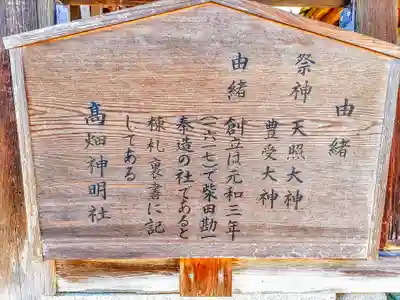 由緒
祭神 天照大神
豊受大神
由緒 創立は元和三年
(一六一七)で柴田勘一
奉造の社であると
棟札裏書に記
してある
髙畑神明社